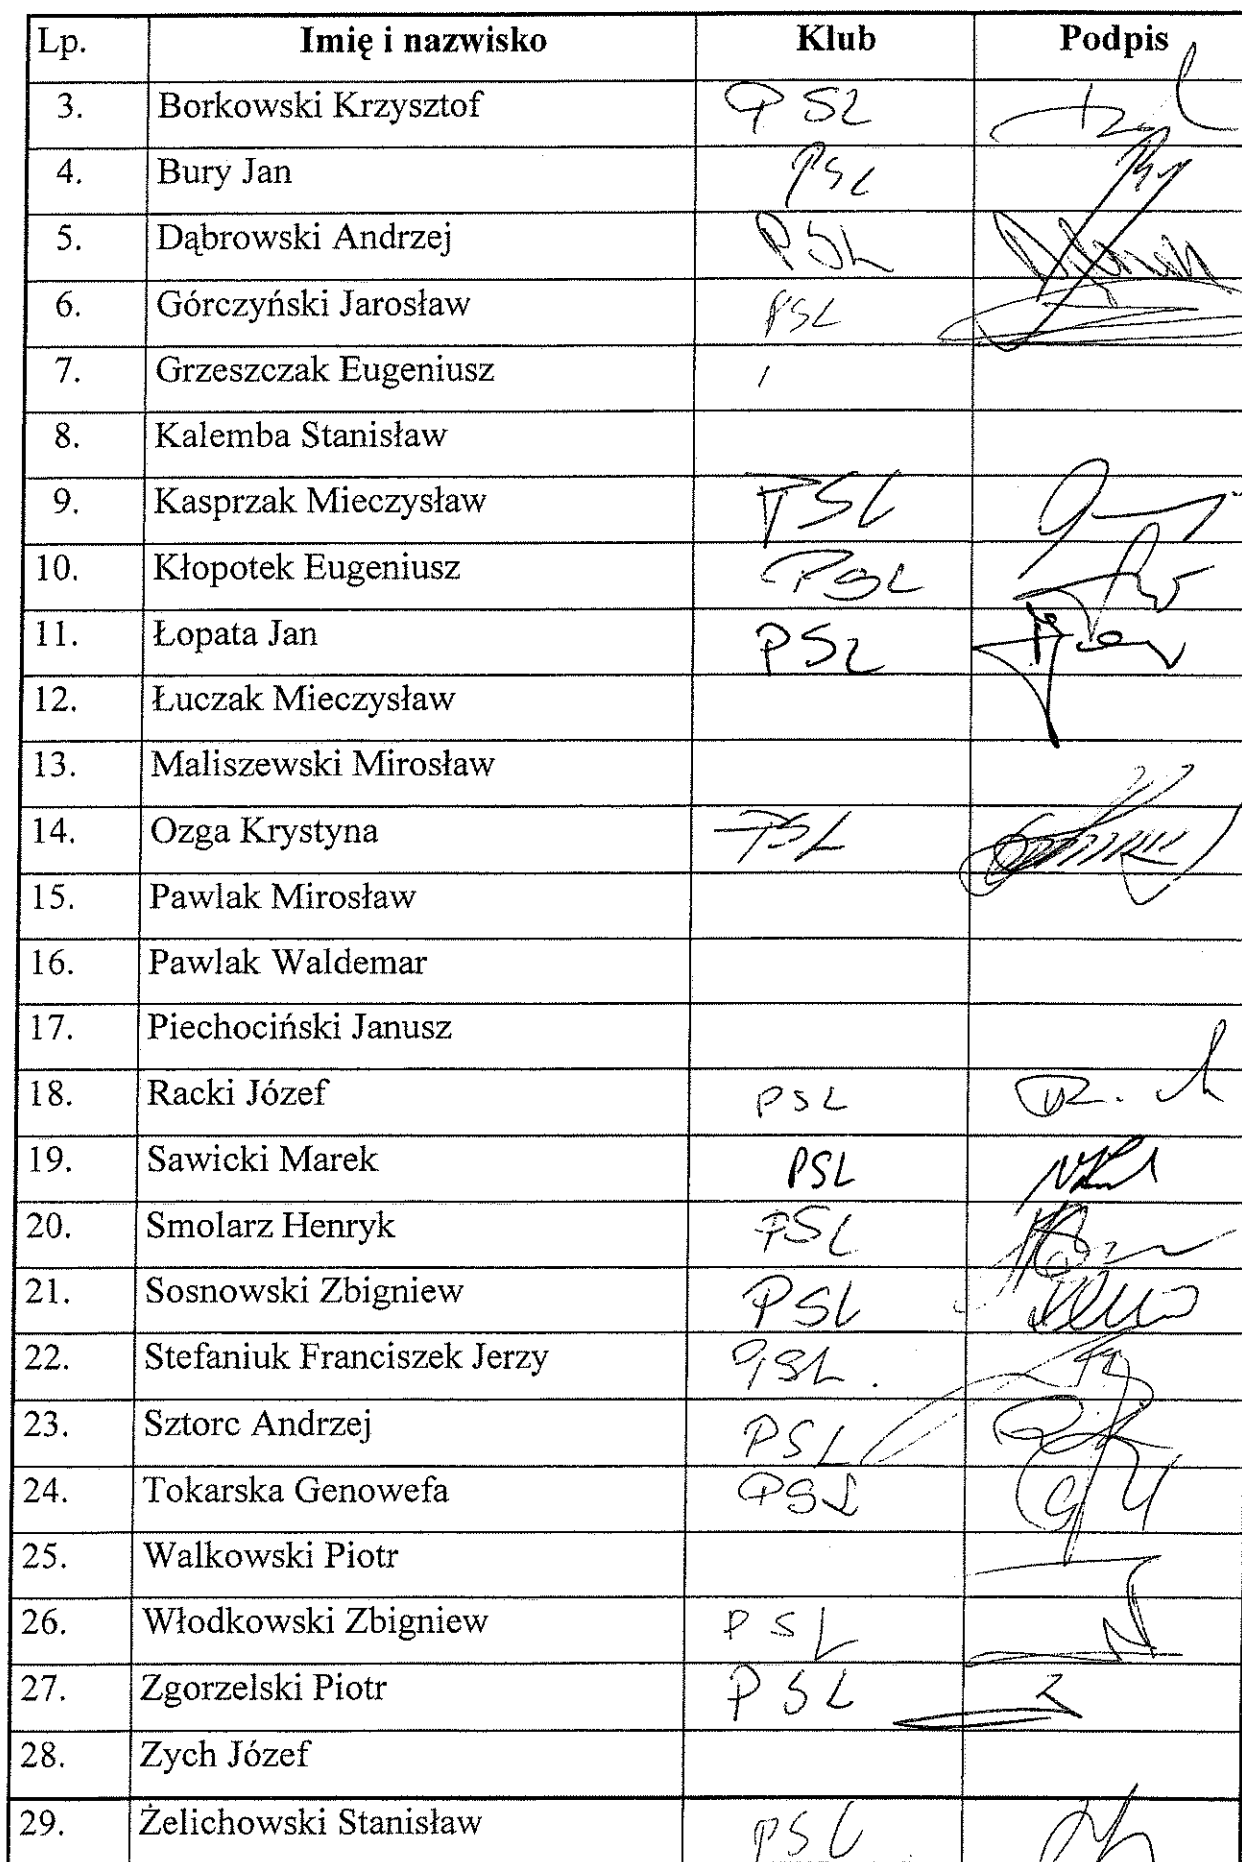 Lp. Imię i nazwisko Klub Podpis
3. Borkowski Krzysztof PSL
4. Bury Jan PSL
5. Dąbrowski Andrzej PSL
6. Górczyński Jarosław PSL
7. Grzeszczak Eugeniusz
8. Kalemba Stanisław
9. Kasprzak Mieczysław PSL
10. Kłopotek Eugeniusz PSL
11. Łopata Jan PSL
12. Łuczak Mieczysław
13. Maliszewski Mirosław
14. Ozga Krystyna PSL
15. Pawlak Mirosław
16. Pawlak Waldemar
17. Piechociński Janusz
18. Racki Józef PSL
19. Sawicki Marek PSL
20. Smolarz Henryk PSL
21. Sosnowski Zbigniew PSL
22. Stefaniuk Franciszek Jerzy PSL.
23. Sztorc Andrzej PSL
24. Tokarska Genowefa PSL
25. Walkowski Piotr
26. Włodkowski Zbigniew PSL
27. Zgorzelski Piotr PSL
28. Zych Józef
29. Żelichowski Stanisław PSL